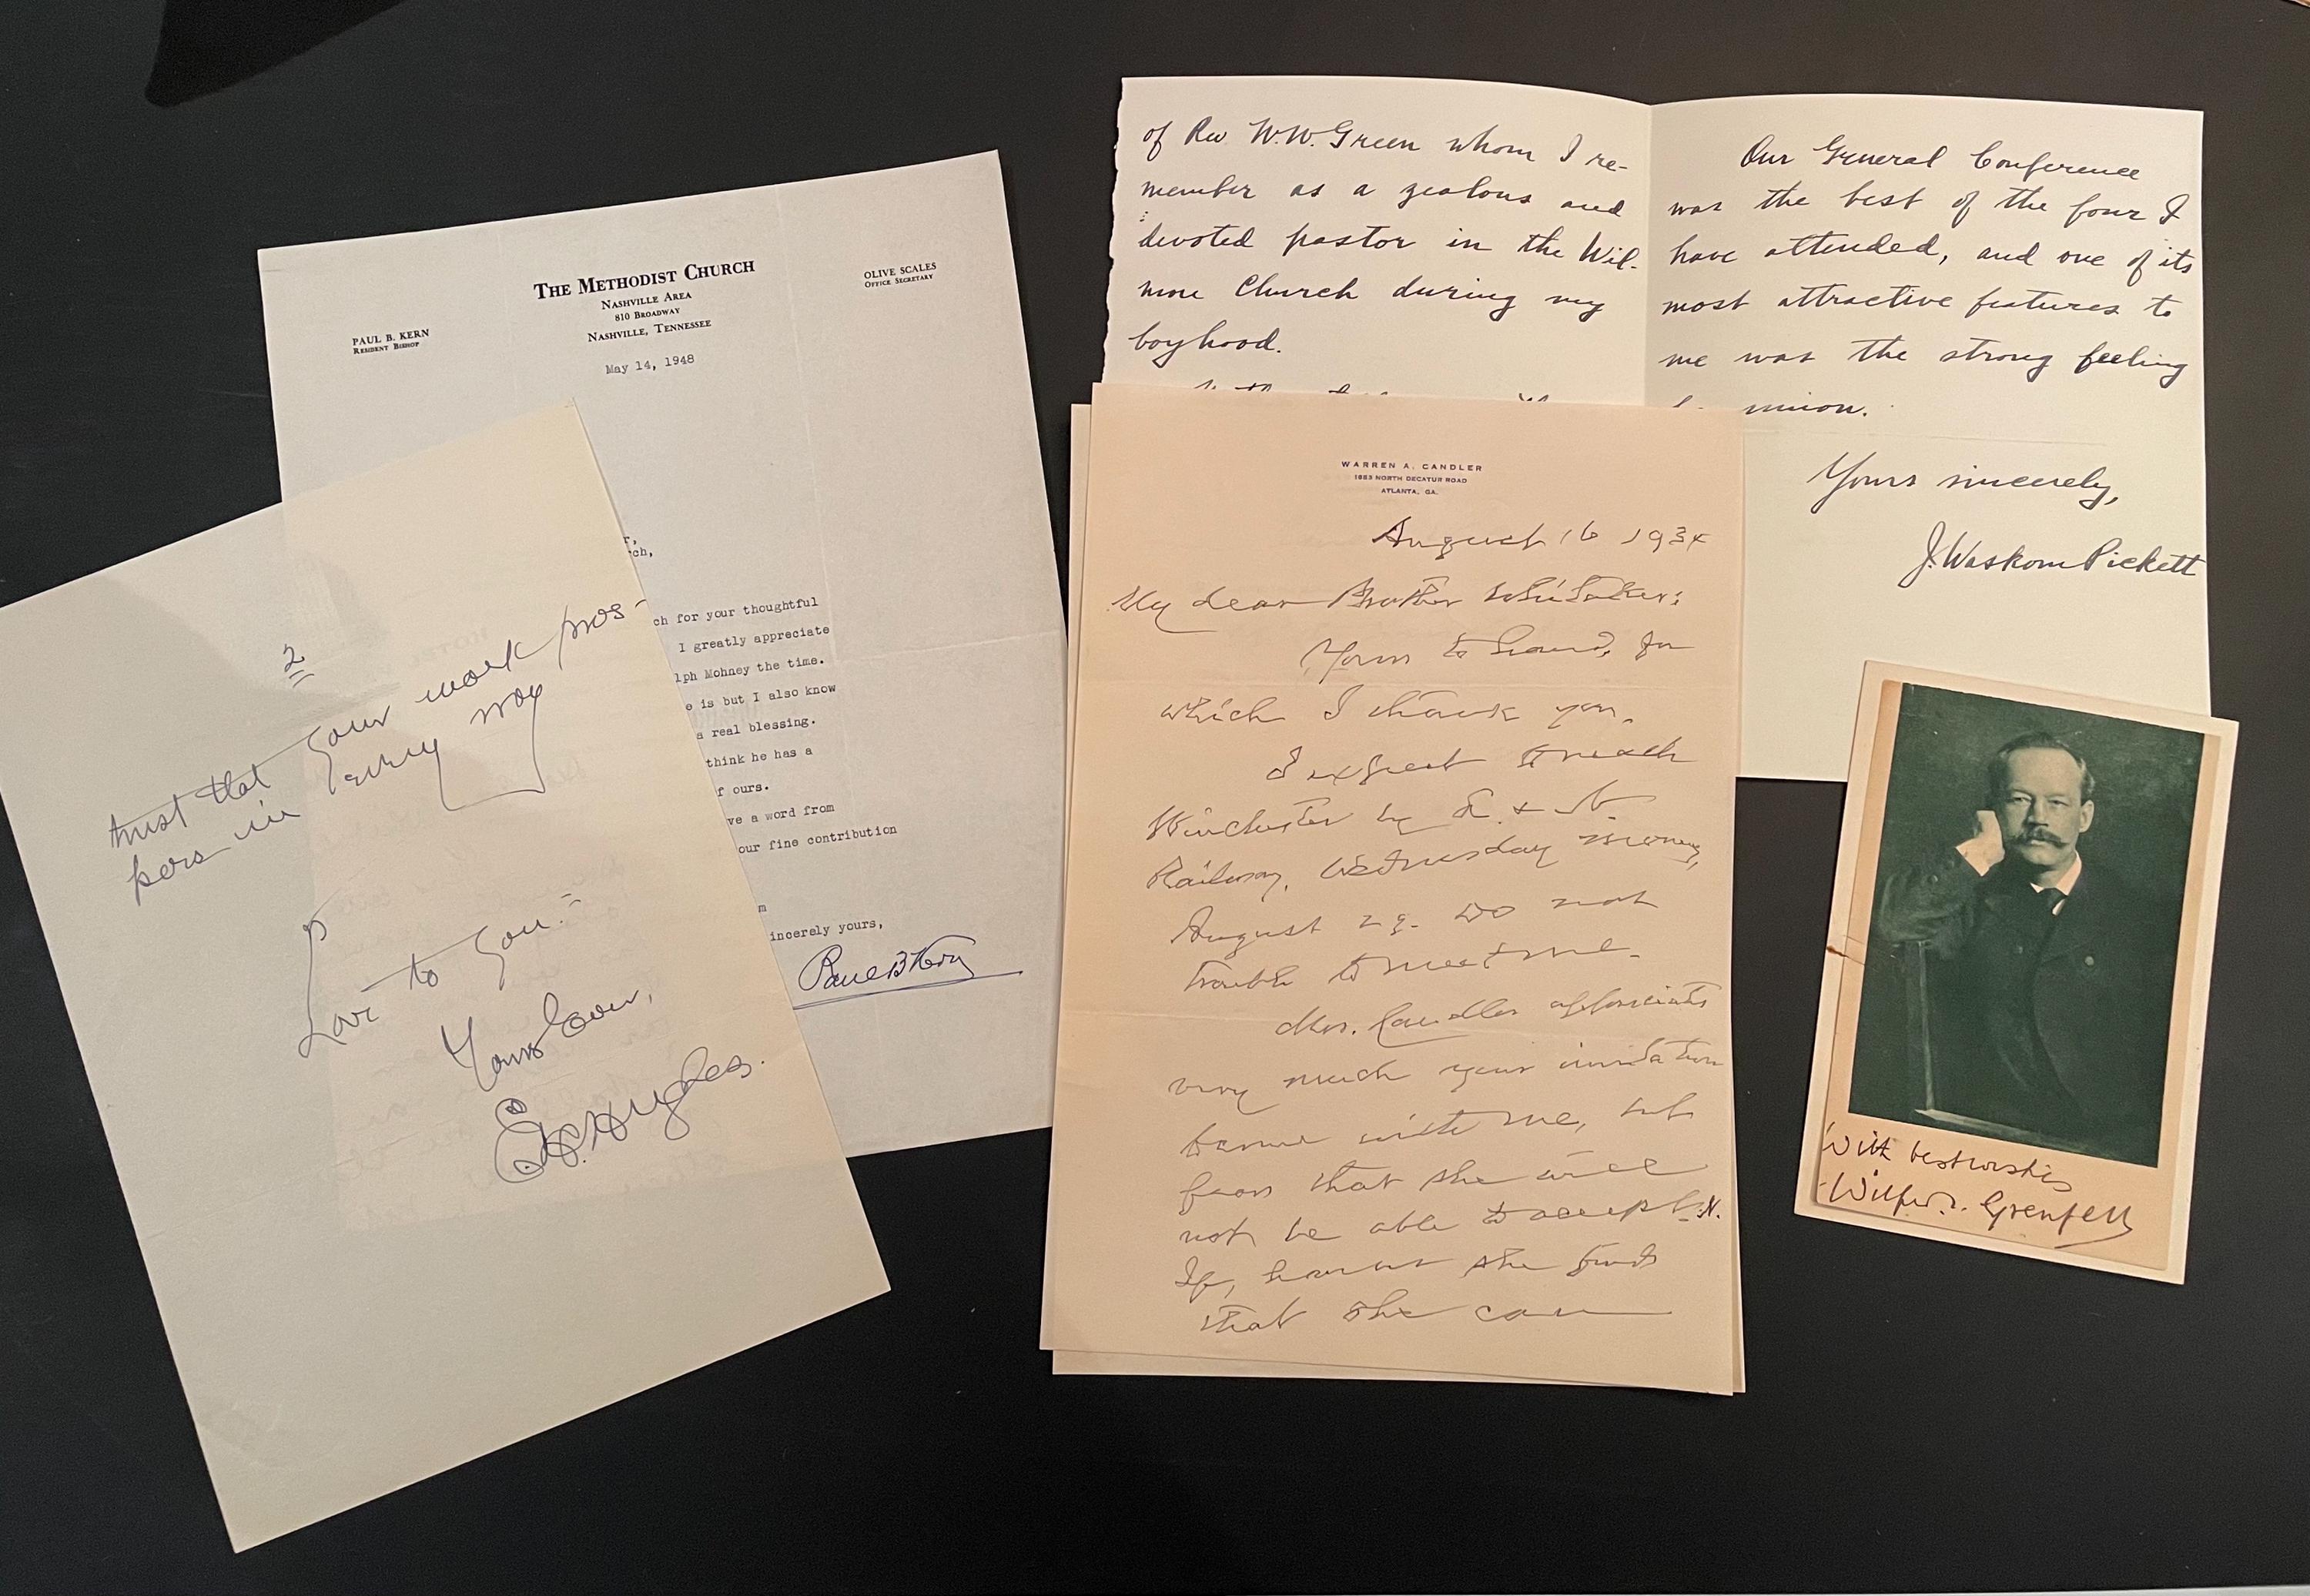 THE METHODIST CHURCH
NASHVILLE AREA
810 BROADWAY
NASHVILLE, TENNESSEE
PAUL B. KERN
RESIDENT BISHOP
OLIVE SCALES
OFFICE SECRETARY
May 14, 1948
ch for your thoughtful
I greatly appreciate
lph Mohney the time.
e is but I also know
a real blessing.
think he has a
f ours.
ve a word from
our fine contribution
incerely yours,
Paul B Kern
2
trust that your work pros-
pers in every way
Love to you:-
Yours Ever,
E. H. Hughes.
of Rev W.W. Green whom I re-
member as a zealous and
devoted pastor in the Wil-
more Church during my
boyhood.
Our General Conference
was the best of the four I
have attended, and one of its
most attractive features to
me was the strong feeling
union.
Yours sincerely,
J. Waskom Pickett
WARREN A. CANDLER
1683 NORTH DECATUR ROAD
ATLANTA, GA.
August 16 1934
My dear Brother Whitaker:
Yours to hand, for
which I thank you.
I expect to reach
Winchester by L. & N.
Railway, Wednesday morning,
August 29. Do not
trouble to meet me.
Mrs. Candler appreciates
very much your invitation
to come with me, but
fears that she will
not be able to accept it.
If, however she finds
that she can
With best wishes
Wilfred. Grenfell